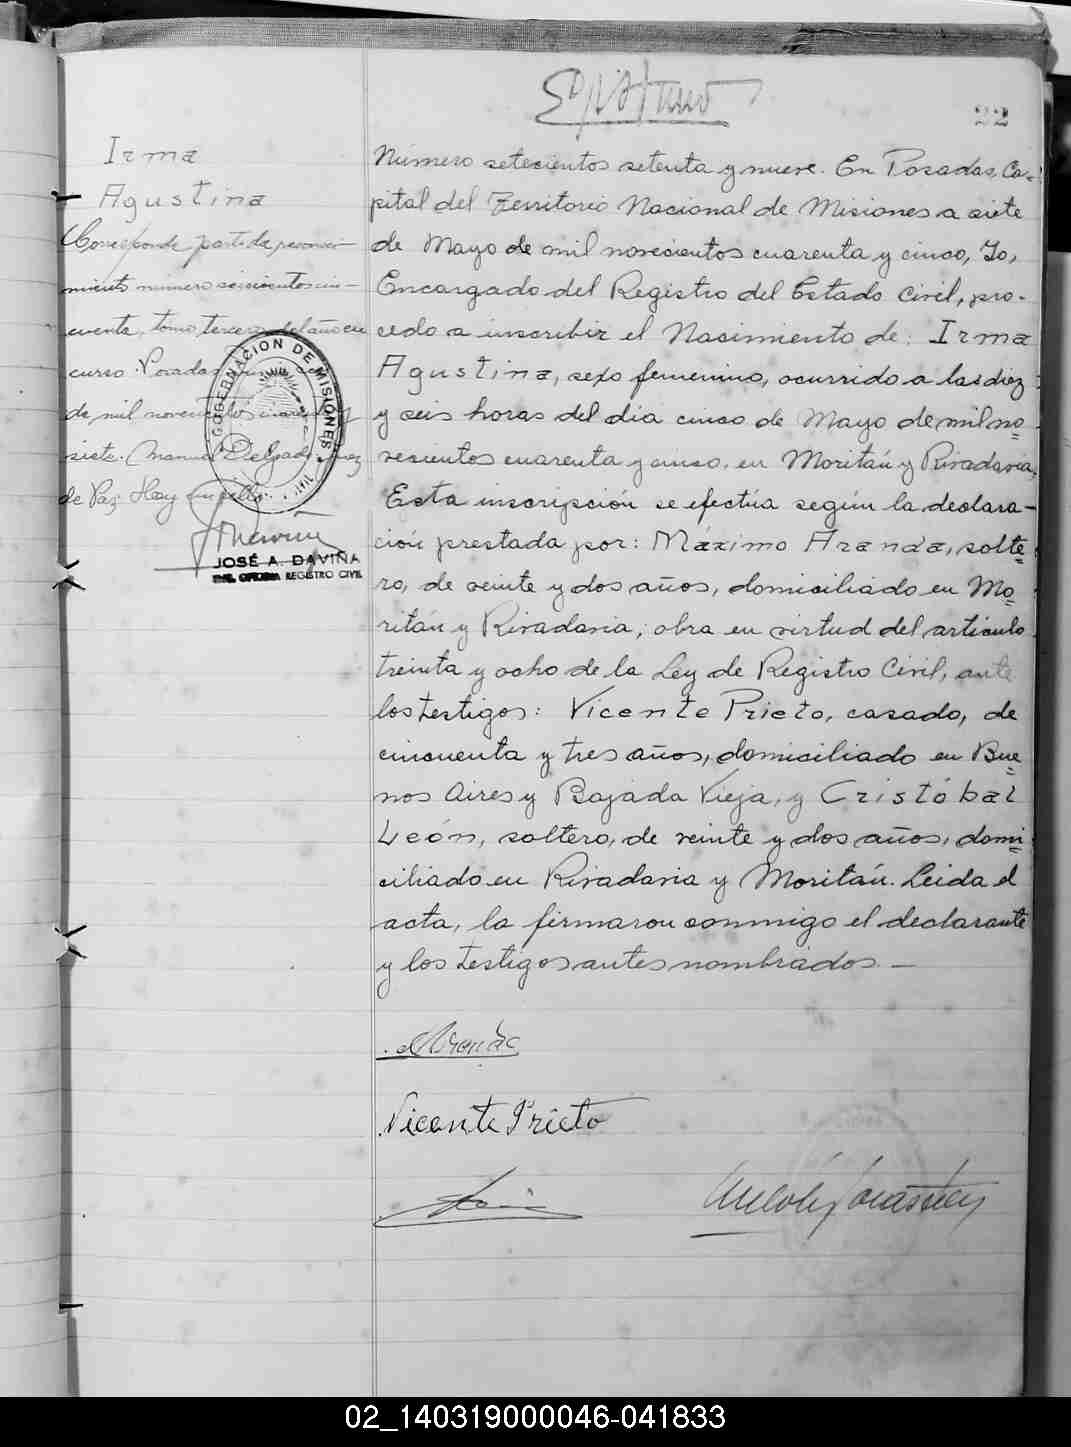 22
Irma
Agustina
Corresponde partida reconoci-
miento número seiscientos cin-
cuenta, tomo tercero del año en
curso. Posadas
de mil novecientos cuarenta y
siete. Manuel Delgado Juez
de Paz. Hay un sello.
GOBERNACION DE MISIONES
JOSÉ A. DAVIÑA
REGISTRO CIVIL
Número setecientos setenta y nueve. En Posadas, Ca-
pital del Territorio Nacional de Misiones a siete
de Mayo de mil novecientos cuarenta y cinco, Yo,
Encargado del Registro del Estado Civil, pro-
cedo a inscribir el Nacimiento de: Irma
Agustina, sexo femenino, ocurrido a las diez
y seis horas del dia cinco de Mayo de mil no=
vecientos cuarenta y cinco, en Moritán y Rivadavia.
Esta inscripción se efectúa según la declara-
ción prestada por: Máximo Aranda, solte=
ro, de veinte y dos años, domiciliado en Mo=
ritán y Rivadavia; obra en virtud del articulo
treinta y ocho de la Ley de Registro Civil, ante
los testigos: Vicente Prieto, casado, de
cincuenta y tres años, domiciliado en Bue=
nos Aires y Bajada Vieja, y Cristóbal
León, soltero, de veinte y dos años, domi=
ciliado en Rivadavia y Moritán. Leida el
acta, la firmaron conmigo el declarante
y los testigos antes nombrados. —
Aranda
Vicente Prieto
02_140319000046-041833